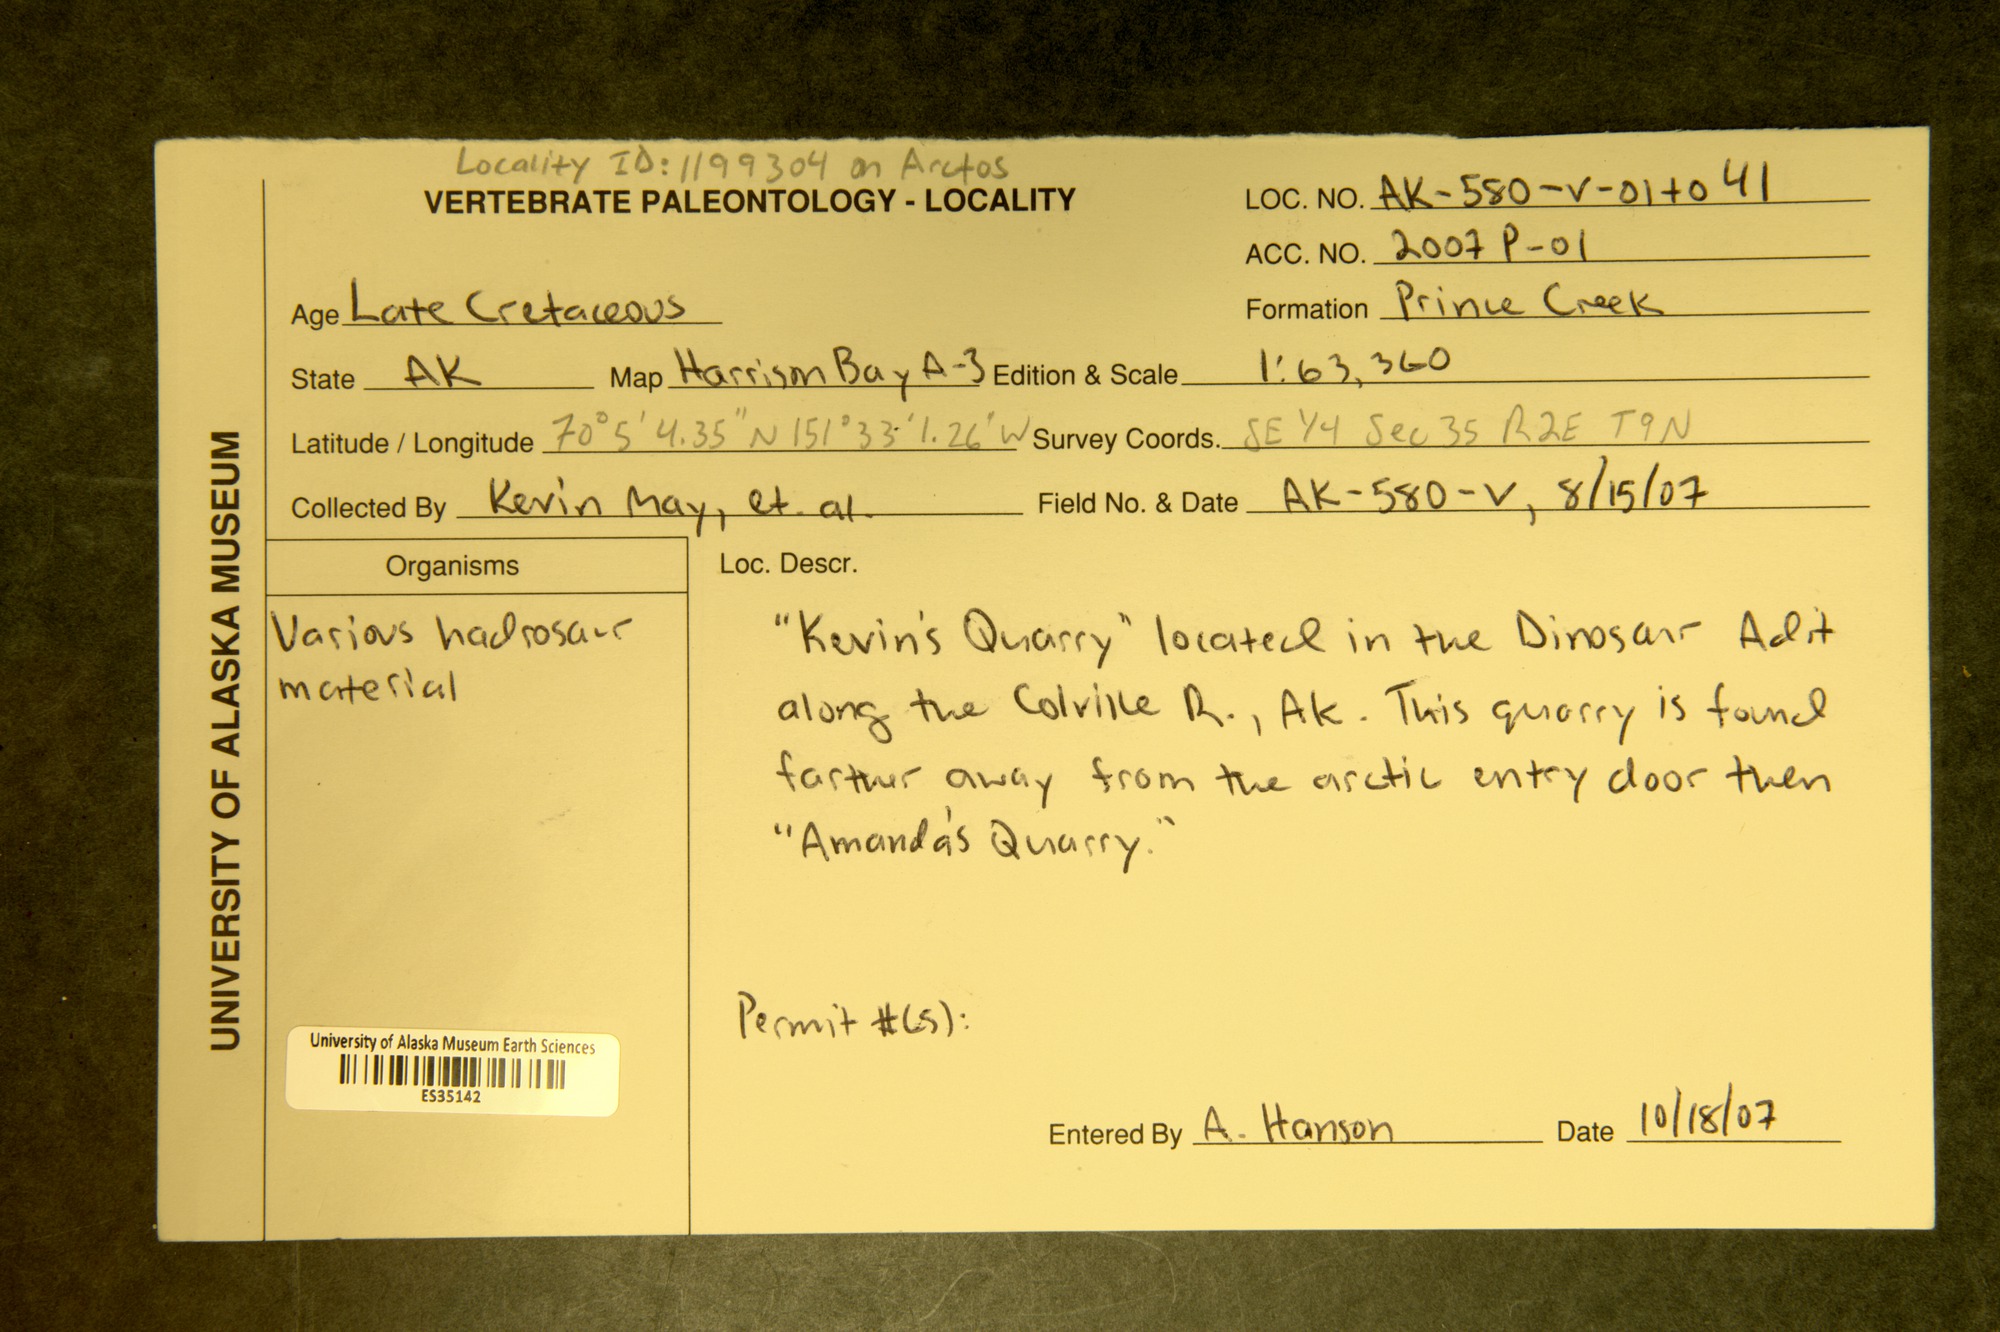 Locality ID: 1199304 on Arctos
VERTEBRATE PALEONTOLOGY - LOCALITY
LOC. NO. AK-580-V-01 to 41
ACC. NO. 2007 P-01
Age Late Cretaceous
Formation Prince Creek
State AK Map Harrison Bay A-3 Edition & Scale 1:63,360
Latitude / Longitude 70°5'4.35"N 151°33'1.26'W Survey Coords. SE 1/4 Sec 35 R2E T9N
Collected By Kevin May, et. al. Field No. & Date AK-580-V, 8/15/07
Organisms
Various hadrosaur
material
Loc. Descr.
"Kevin's Quarry" located in the Dinosaur Adit
along the Colville R., AK. This quarry is found
farther away from the arctic entry door then
"Amanda's Quarry."
Permit #(s):
Entered By A. Hanson Date 10/18/07
UNIVERSITY OF ALASKA MUSEUM
University of Alaska Museum Earth Sciences
ES35142